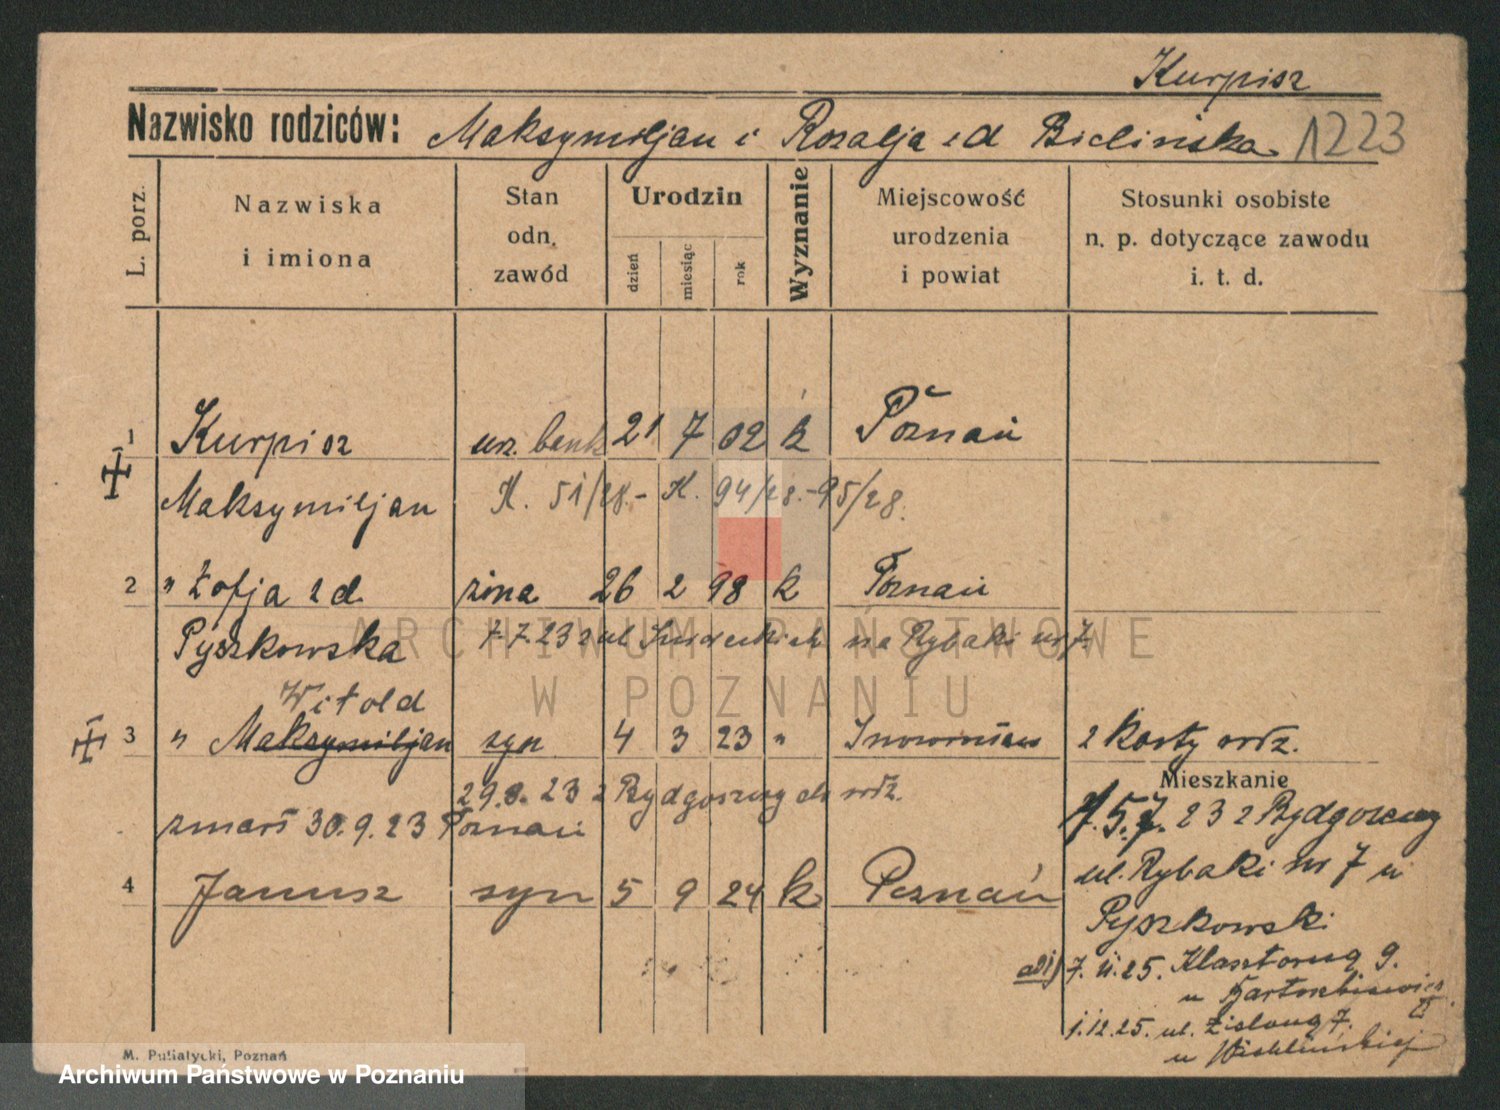 Kurpisz
Nazwisko rodziców: Maksymiljan i Rozalja zd Bielińska 1223
L. porz.
Nazwiska i imiona
Stan odn. zawód
Urodzin
dzień
miesiąc
rok
Wyznanie
Miejscowość urodzenia i powiat
Stosunki osobiste n. p. dotyczące zawodu i. t. d.
1 Kurpisz urz. bank 21 7 02 k Poznań
Maksymiljan K. 51/28.- K. 94/28.-95/28.
2 " Zofja zd. żona 26 2 98 k Poznań
Pyszkowska 7.7.23 z ul na Rybaki nr 7
Witold
3 " Maksymiljan syn 4 3 23 " 2 karty rodz.
29.8.23 z Bydgoszczy do rodz.
Mieszkanie
zmarł 30.9.23 Poznań
5.7.23 z Bydgoszczy
ul. Rybaki nr 7 u
4 Janusz syn 5 9 24 k Poznań
Pyszkowski
7.11.25. Klasztorna 9.
u
1.12.25. ul. Zielona 7.
u
M. Putiatycki, Poznań
ARCHIWUM PAŃSTWOWE
W POZNANIU
Archiwum Państwowe w Poznaniu